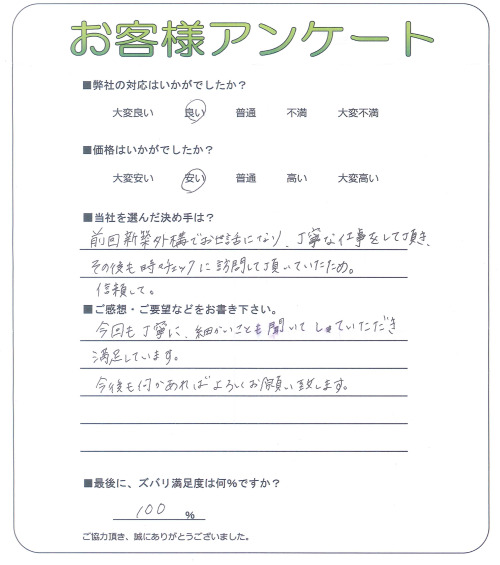 お客様アンケート
■弊社の対応はいかがでしたか？
大変良い 良い 普通 不満 大変不満
■価格はいかがでしたか？
大変安い 安い 普通 高い 大変高い
■当社を選んだ決め手は？
前回新築外構でお世話になり、丁寧な仕事をして頂き、
その後も時々チェックに訪問して頂いていたため。
信頼して。
■ご感想・ご要望などをお書き下さい。
今回も丁寧に、細かいことも聞いて していただき
満足しています。
今後も何かあればよろしくお願い致します。
■最後に、ズバリ満足度は何％ですか？
100 ％
ご協力頂き、誠にありがとうございました。